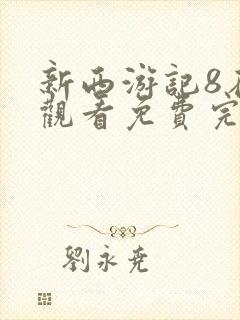 新西游記8
觀看免費完
劉永堯